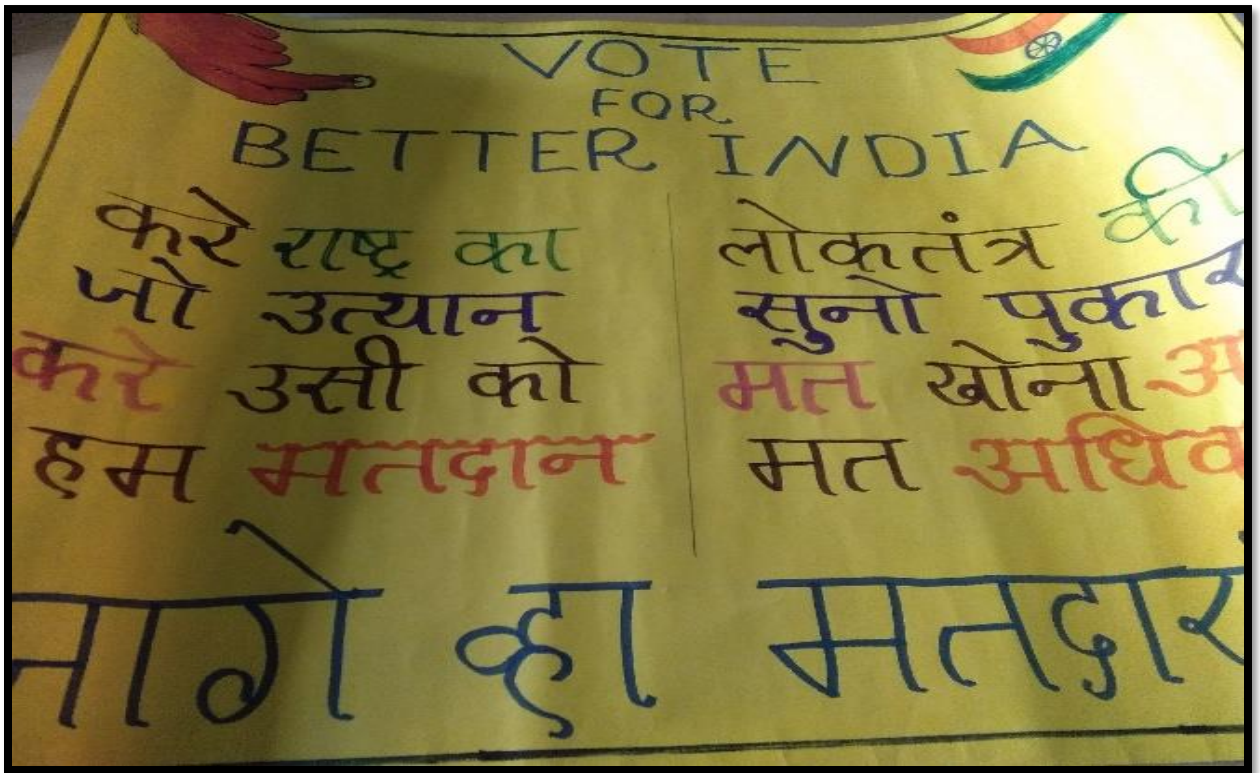 VOTE
FOR
BETTER INDIA
करे राष्ट्र का
जो उत्यान
करे उसी को
हम मतदान
लोकतंत्र की
सुनो पुकार
मत खोना
मत
व्हा